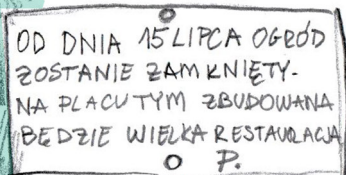 OD DNIA 15 LIPCA OGRÓD
ZOSTANIE ZAMKNIĘTY.
NA PLACU TYM ZBUDOWANA
BĘDZIE WIELKA RESTAURACJA
P.